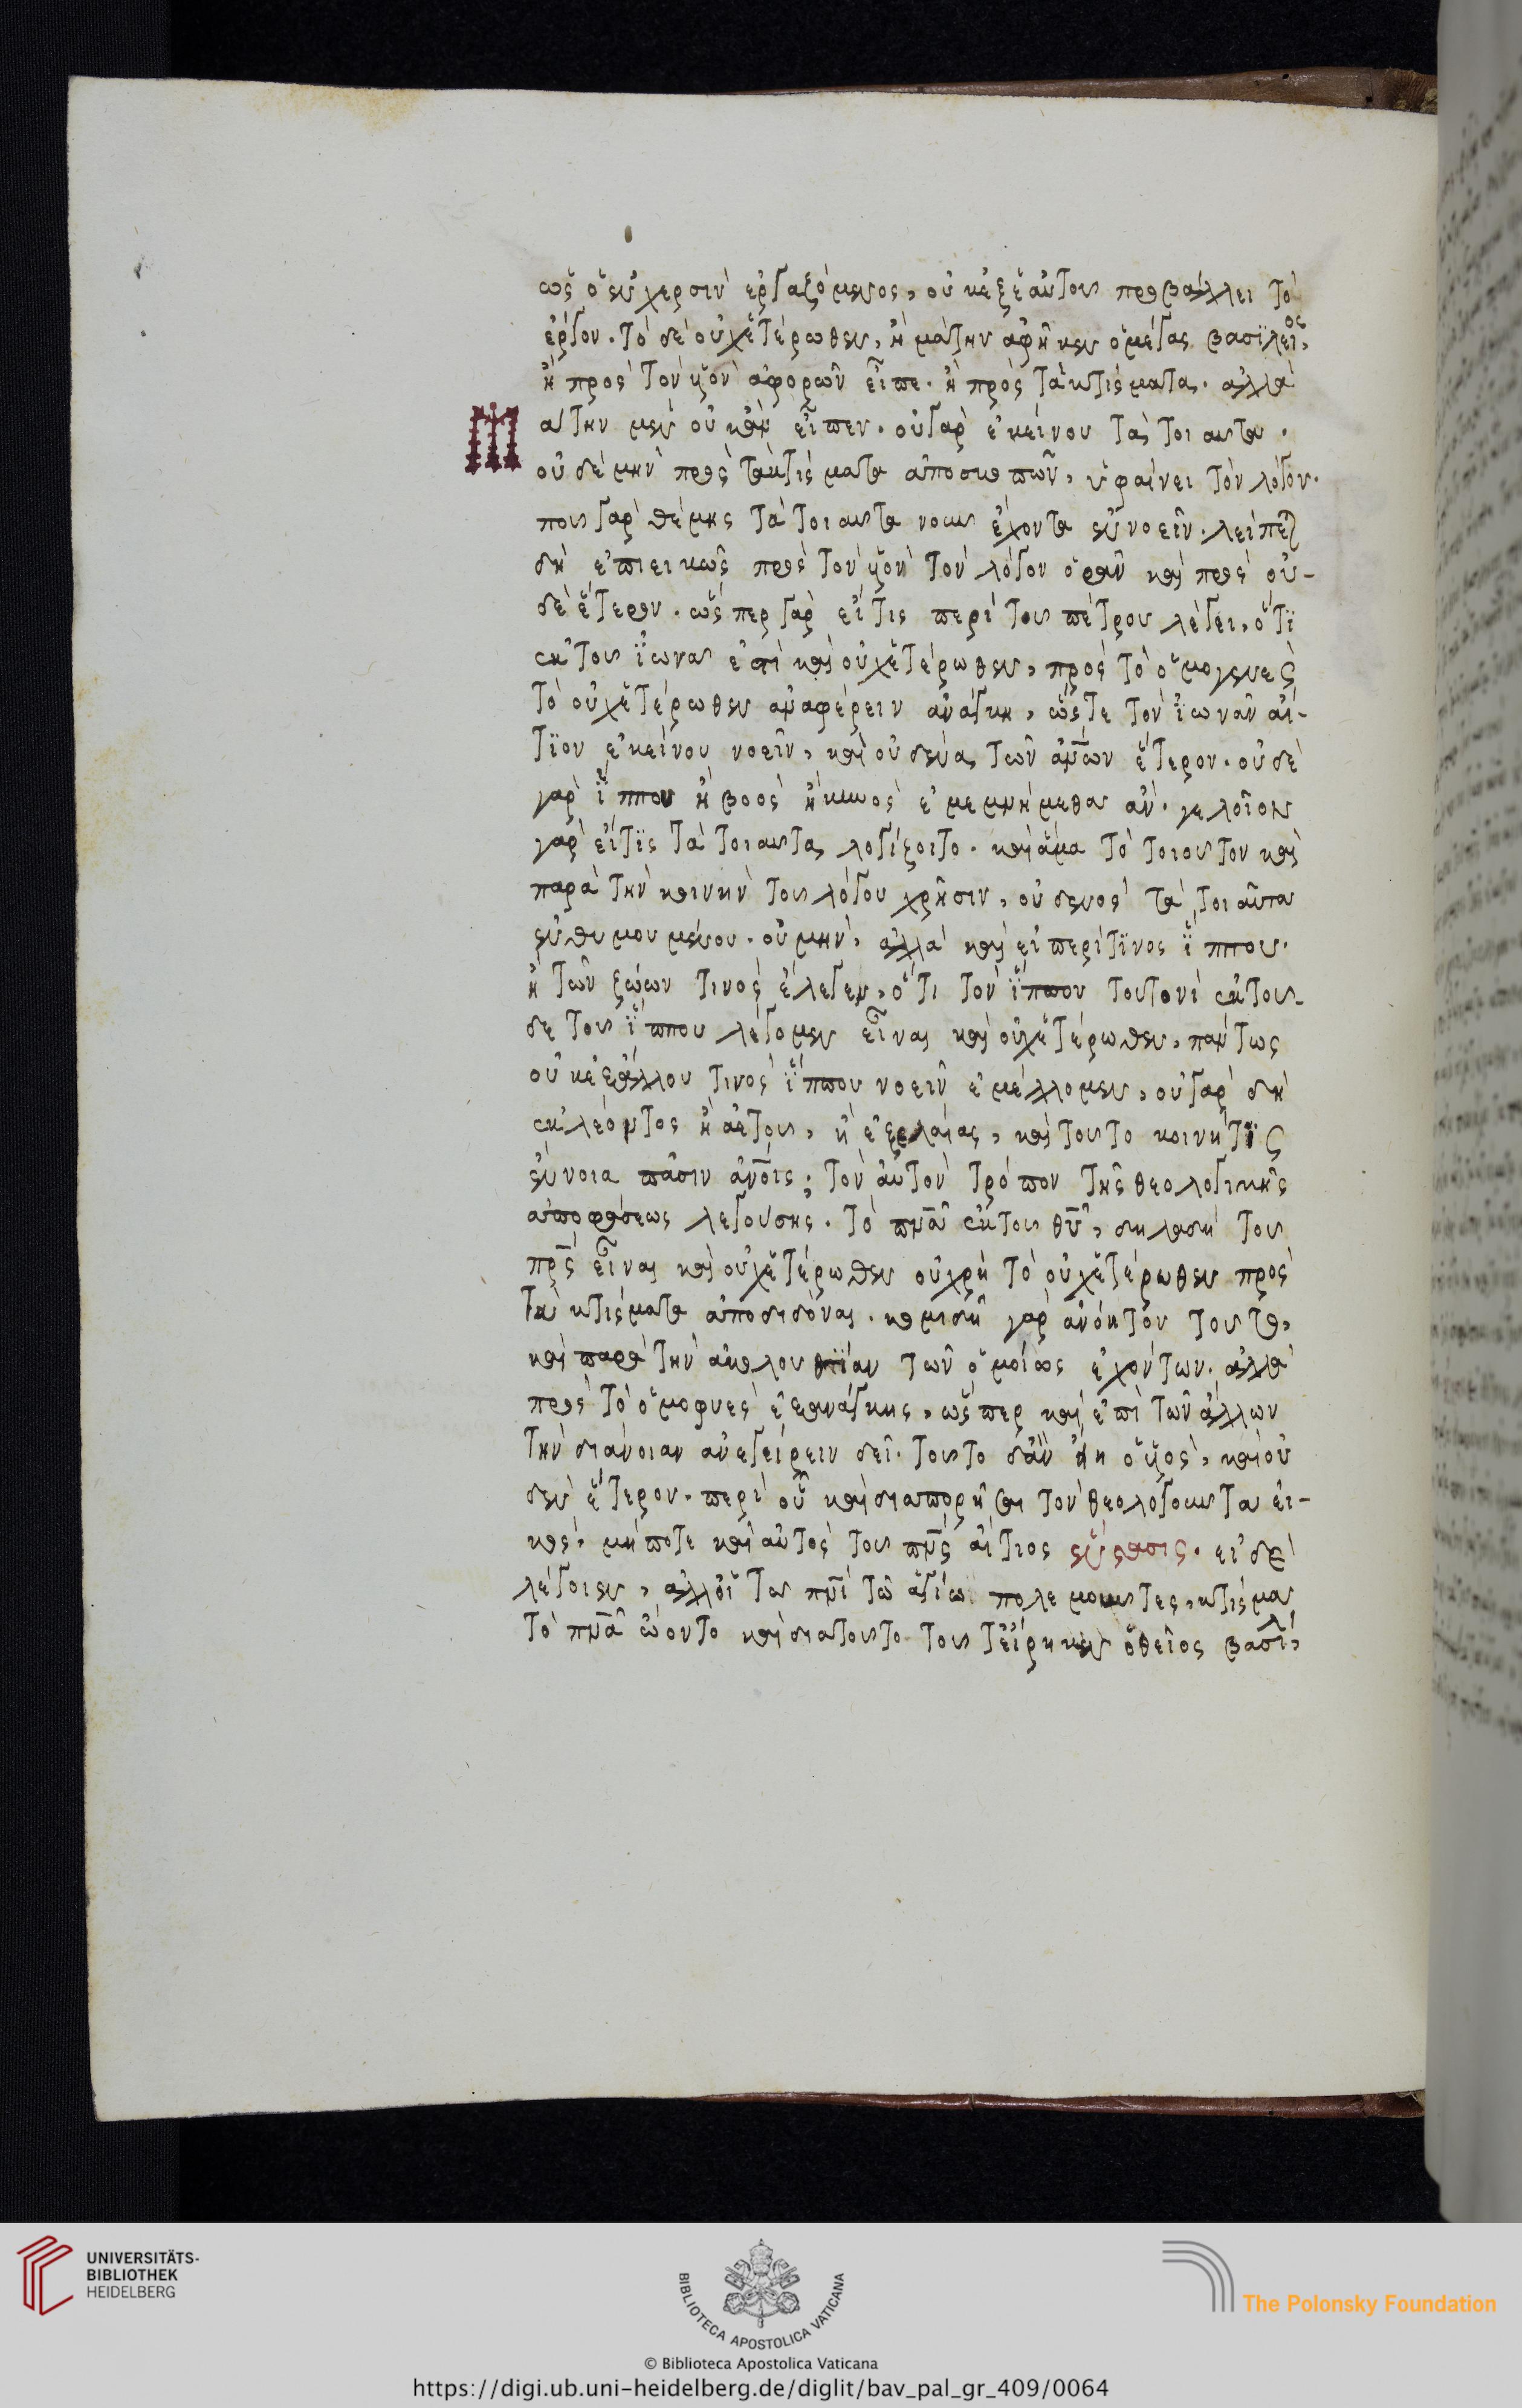 ὡς ὁ ἐν χερσὶν ἐργαζόμενος, οὐκ ἐξ ἑαυτοῦ προβάλλει τὸ
ἔργον. τὸ δὲ οὐχ ἑτέρωθεν, ἢ μάτην ἀφῆκεν ὁ μέγας βασίλειος,
ἢ πρὸς τὸν υἱὸν ἀφορῶν εἶπε. ἢ πρὸς τὰ κτίσματα. ἀλλὰ
Μάτην μὲν οὐκ ἂν εἶπεν. οὐ γὰρ ἐκείνου τὰ τοιαῦτα.
οὐδὲ μὴν πρὸς τὰ κτίσματα ἀποσκοπῶν, ὑφαίνει τὸν λόγον.
ποῦ γὰρ θέμις τὰ τοιαῦτα νοῦν ἔχοντα ἐννοεῖν. λείπεται
δὴ ἐπιεικῶς πρὸς τὸν υἱὸν τὸν λόγον ὁρᾶν καὶ πρὸς οὐ-
δὲ ἕτερον. ὥσπερ γὰρ εἴ τις περὶ τοῦ πέτρου λέγει, ὅτι
ἐκ τοῦ ἰωνᾶ ἐστὶ καὶ οὐχ ἑτέρωθεν, πρὸς τὸ ὁμογενὲς
τὸ οὐχ ἑτέρωθεν ἀναφέρειν ἀνάγκη, ὥστε τὸν ἰωνᾶν αἴ-
τιον ἐκείνου νοεῖν, καὶ οὐδένα τῶν ἀνων ἕτερον. οὐδὲ
γὰρ ἵππου ἢ βοὸς ἢ κυνὸς ἐμεμνήμεθα ἄν. γελοῖον
γὰρ εἴ τις τὰ τοιαῦτα λογίζοιτο. καὶ ἅμα τὸ τοιοῦτον καὶ
παρὰ τὴν κοινὴν τοῦ λόγου χρῆσιν, οὐδενὸς τὰ τοιαῦτα
ἐνθυμουμένου. οὐ μὴν, ἀλλὰ καὶ εἰ περί τινος ἵππου.
ἢ τῶν ζώων τινὸς ἔλεγεν, ὅτι τὸν ἵππον τουτονὶ ἐκ τοῦ-
δε τοῦ ἵππου λέγομεν εἶναι καὶ οὐχ ἑτέρωθεν, πάντως
οὐκ ἐξ ἄλλου τινὸς ἵππου νοεῖν ἐμέλλομεν, οὐ γὰρ δὴ
ἐκ λέοντος ἢ ἀετοῦ, ἢ ἐξ ἐλαίας, καὶ τοῦτο κοινή τις
ἔννοια πᾶσιν ἀνοις; τὸν αὐτὸν τρόπον τῆς θεολογικῆς
ἀποφάσεως λεγούσης. τὸ πνα ἐκ τοῦ θυ, δηλαδὴ τοῦ
πρς εἶναι καὶ οὐχ ἑτέρωθεν οὐ χρὴ τὸ οὐχ ἑτέρωθεν πρὸς
τὰ κτίσματα ἀποδιδόναι. κομιδῆ γὰρ ἀνόητον τοῦτο,
καὶ παρὰ τὴν ἀκολουθίαν τῶν ὁμοίως ἐχόντων. ἀλλὰ
πρὸς τὸ ὁμοφυὲς ἐξ ἀνάγκης, ὥσπερ καὶ ἐπὶ τῶν ἄλλων
τὴν διάνοιαν ἀνεγείρειν δεῖ. τοῦτο δ' ἂν εἴη ὁ υἱὸς, καὶ οὐ-
δὲν ἕτερον. περὶ οὗ καὶ διαπορῆσαι τὸν θεολογοῦντα εἰ-
κὸς. μήποτε καὶ αὐτὸς τοῦ πνς αἴτιος ἔνστασις. εἰ δὲ
λέγοιεν, ἀλλ' οἱ τῶ πνι τῶ ἁγίω πολεμοῦντες, κτίσμα
τὸ πνα ὤοντο καὶ διὰ τοῦτο τοῦτ' εἴρηκεν ὁ θεῖος βασίλ,
UNIVERSITÄTS-
BIBLIOTHEK
HEIDELBERG
BIBLIOTECA APOSTOLICA VATICANA
The Polonsky Foundation
© Biblioteca Apostolica Vaticana
https://digi.ub.uni-heidelberg.de/diglit/bav_pal_gr_409/0064